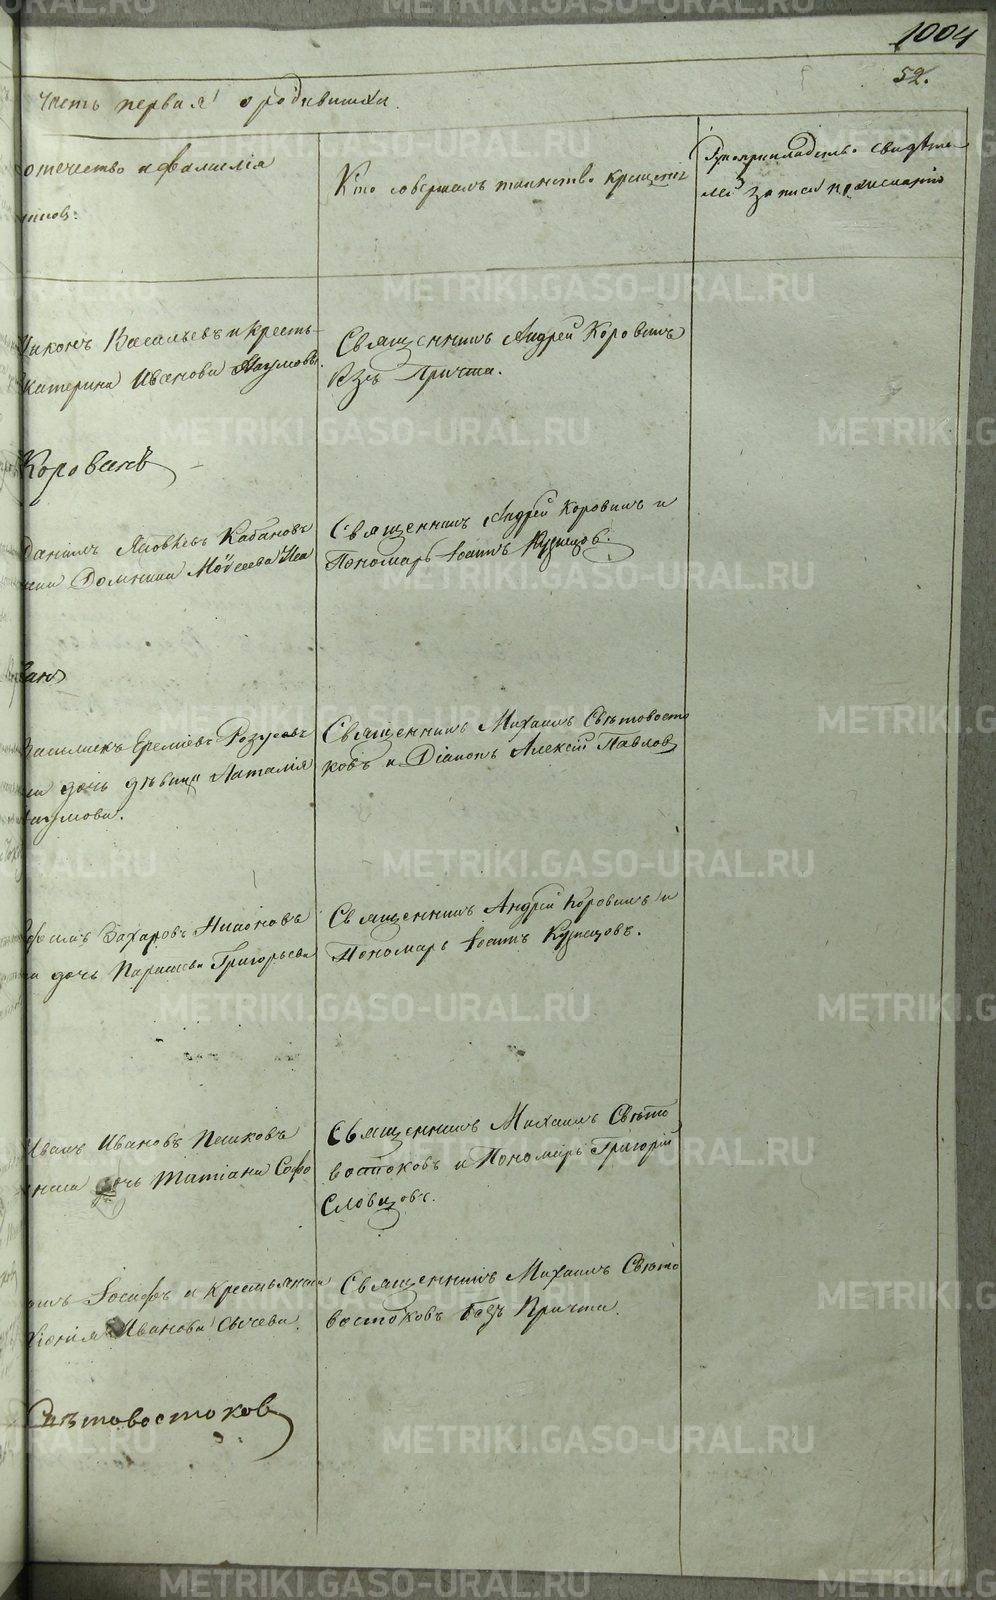 1004
52.
Часть первая о родившихся.
отчество и фамилія
Кто совершалъ таинство крещенія
Рукоприкладство свидѣте-
лей записи по желанію
Никонъ Васильевъ и кресть-
Екатерина Иванова Наумовы.
Священникъ Андрей Коровинъ
безъ Причта.
Коровинъ
Даніилъ Яковлевъ Кабановъ
Домника Моисеева
Священникъ Андрей Коровинъ и
Пономарь Іоаннъ Кузнецовъ.
Еремѣевъ
дочь дѣвица Наталія
Наумова.
Священникъ Михаилъ Свѣтовосто
ковъ и Діаконъ Алексій Павловъ
Захаровъ
дочь Параскева Григорьева
Священникъ Андрей Коровинъ и
Пономарь Іоаннъ Кузнецовъ.
Иванъ Ивановъ Пешковъ
дочь Татіана Софо
Священникъ Михаилъ Свѣто
востоковъ и Пономарь Григорій
Словцовъ.
Іосифъ и Крестьянская
Иванова Сычева.
Священникъ Михаилъ Свѣто
востоковъ безъ Причта.
Свѣтовостоковъ
METRIKI.GASO-URAL.RU